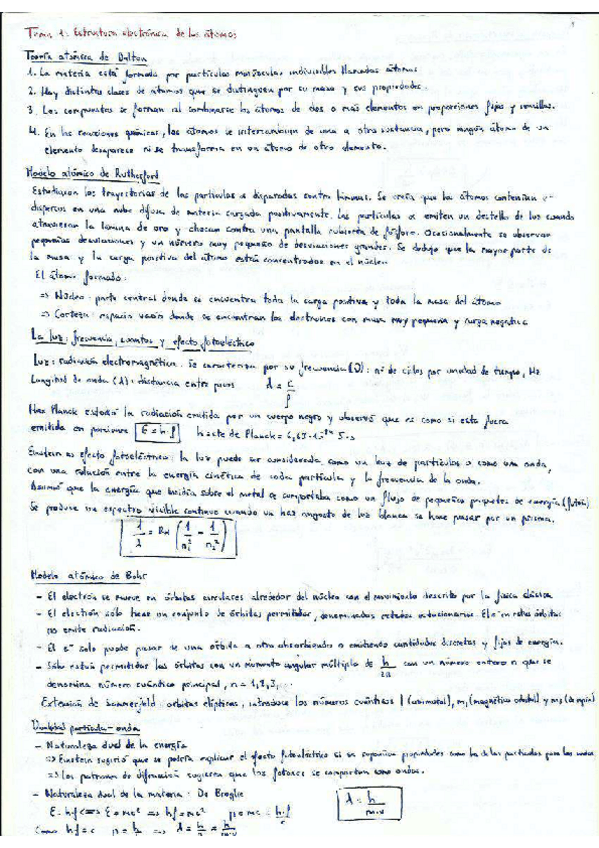 Tema 1: Estructura electrónica de los átomos
Teoría atómica de Dalton
1. La materia está formada por partículas minúsculas indivisibles llamadas átomos.
2. Hay distintas clases de átomos que se distinguen por su masa y sus propiedades.
3. Los compuestos se forman al combinarse los átomos de dos o más elementos en proporciones fijas y sencillas.
4. En las reacciones químicas, los átomos se intercambian de una a otra sustancia, pero ningún átomo de un
elemento desaparece ni se transforma en un átomo de otro elemento.
Modelo atómico de Rutherford
Estudiaron las trayectorias de las partículas α disparadas contra láminas. Se creía que los átomos contenían e-
dispersos en una nube difusa de materia cargada positivamente. Las partículas α emiten un destello de luz cuando
atraviesan la lámina de oro y chocan contra una pantalla cubierta de fósforo. Ocasionalmente se observan
pequeñas desviaciones y un número muy pequeño de desviaciones grandes. Se dedujo que la mayor parte de
la masa y la carga positiva del átomo están concentrados en el núcleo.
El átomo formado:
⇒ Núcleo: parte central donde se encuentra toda la carga positiva y toda la masa del átomo
⇒ Corteza: espacio vacío donde se encuentran los electrones con masa muy pequeña y carga negativa
La luz: frecuencia, cuantos y efecto fotoeléctrico
Luz: radiación electromagnética. Se caracteriza por su frecuencia (ν): nº de ciclos por unidad de tiempo, Hz
Longitud de onda (λ): distancia entre picos λ = c/f
Max Planck estudió la radiación emitida por un cuerpo negro y observó que es como si esta fuera
emitida en porciones E = h·f h = cte de Planck = 6,63·10⁻³⁴ J·s
Einstein efecto fotoeléctrico: la luz puede ser considerada como un haz de partículas o como una onda,
con una relación entre la energía cinética de cada partícula y la frecuencia de la onda.
Asumió que la energía que incidía sobre el metal se comportaba como un flujo de pequeños paquetes de energía (fotón)
Se produce un espectro visible continuo cuando un haz angosto de luz blanca se hace pasar por un prisma.
1/λ = RH (1/n₁² - 1/n₂²)
Modelo atómico de Bohr
- El electrón se mueve en órbitas circulares alrededor del núcleo con el movimiento descrito por la física clásica
- El electrón solo tiene un conjunto de órbitas permitidas, denominadas estados estacionarios. El e- en estas órbitas
no emite radiación.
- El e- solo puede pasar de una órbita a otra absorbiendo o emitiendo cantidades discretas y fijas de energía.
- Solo están permitidas las órbitas con un momento angular múltiplo de h/2π con un número entero n que se
denomina número cuántico principal, n = 1, 2, 3, ...
Extensión de Sommerfeld: orbitas elípticas, introduce los números cuánticos l (azimutal), m (magnético orbital) y ms (de spin)
Dualidad partícula-onda
- Naturaleza dual de la energía
⇒ Einstein sugirió que se podría explicar el efecto fotoeléctrico si se suponían propiedades como las de las partículas para las ondas
⇒ Los patrones de difracción sugieren que los fotones se comportan como ondas.
- Naturaleza dual de la materia: De Broglie λ = h/m·v
E = h·f ⇔ E = mc² ⇒ hf = mc² p = mc = h·f/c
Como λf = c p = h/λ ⇒ λ = h/p = h/m·v